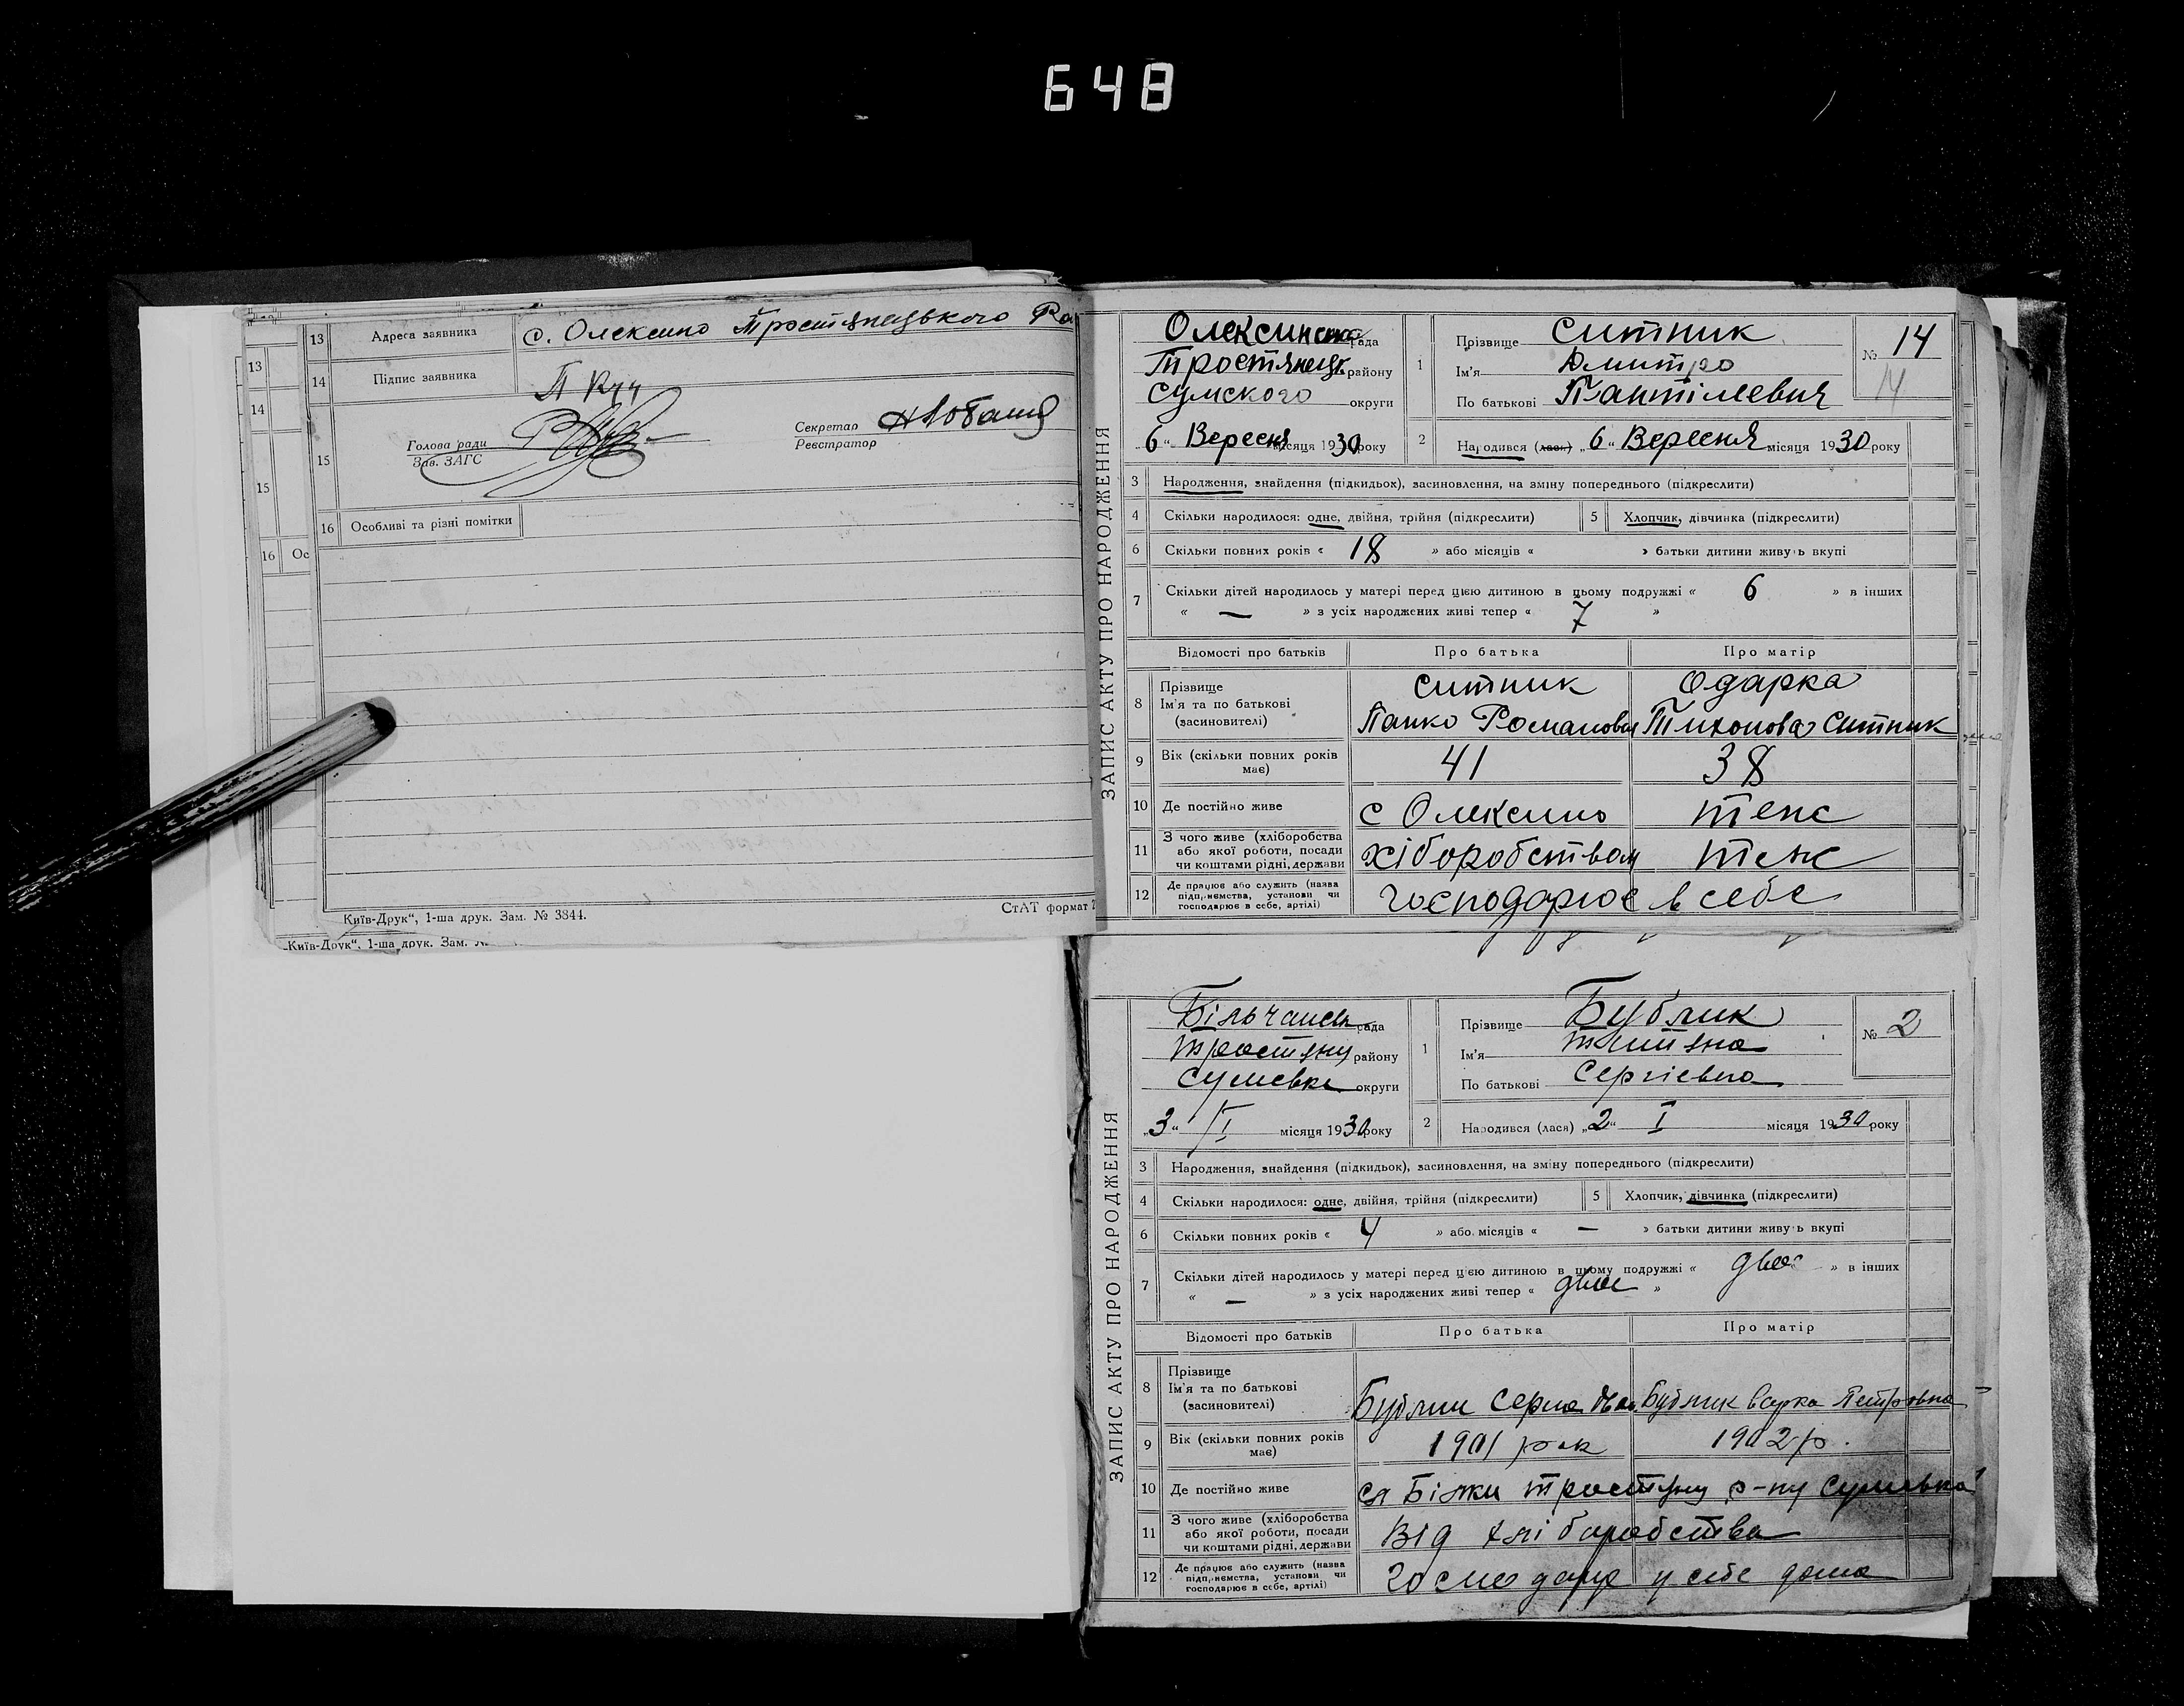 648
13 Адреса заявника с. Олексино Тростянецького Ра
14 Підпис заявника
15 Голова ради
Зав. ЗАГС
Секретар
Реєстратор
16 Особливі та різні помітки
13
14
15
16 Ос
Київ-Друк“, 1-ша друк. Зам. № 3844.
СтАТ формат
Київ-Друк“, 1-ша друк. Зам.
ЗАПИС АКТУ ПРО НАРОДЖЕННЯ
Олексинська рада
Тростянець району
Сумского округи
„6“ Вересня місяця 1930 року
1 Прізвище Ситник
Ім'я Дмитро
По батькові Пантілевич
№ 14
14
2 Народився (лася) „6“ Вересня місяця 1930 року
3 Народження, знайдення (підкидьок), засиновлення, на зміну попереднього (підкреслити)
4 Скільки народилося: одне, двійня, трійня (підкреслити) 5 Хлопчик, дівчинка (підкреслити)
6 Скільки повних років « 18 » або місяців « » батьки дитини живуть вкупі
7 Скільки дітей народилось у матері перед цією дитиною в цьому подружжі « 6 » в інших
« — » з усіх народжених живі тепер « 7 »
Відомості про батьків Про батька Про матір
8 Прізвище
Ім'я та по батькові
(засиновителі)
Ситник Одарка
Панко Романович Тихонова Ситник
9 Вік (скільки повних років має) 41 38
10 Де постійно живе с Олексино теж
11 З чого живе (хліборобства
або якої роботи, посади
чи коштами рідні, держави
хіборобством теж
12 Де працює або служить (назва
підприємства, установи чи
господарює в себе, артілі)
господарює в себе
ЗАПИС АКТУ ПРО НАРОДЖЕННЯ
Більчанськ рада
Тростяну району
Сумської округи
„3“ /I місяця 1930 року
1 Прізвище Бублик
Ім'я
По батькові Сергієвна
№ 2
2 Народився (лася) „2“ I місяця 1930 року
3 Народження, знайдення (підкидьок), засиновлення, на зміну попереднього (підкреслити)
4 Скільки народилося: одне, двійня, трійня (підкреслити) 5 Хлопчик, дівчинка (підкреслити)
6 Скільки повних років « 4 » або місяців « — » батьки дитини живуть вкупі
7 Скільки дітей народилось у матері перед цією дитиною в цьому подружжі « двоє » в інших
« — » з усіх народжених живі тепер « двоє »
Відомості про батьків Про батька Про матір
8 Прізвище
Ім'я та по батькові
(засиновителі)
Бублик Серг Іван Бублик Варка Петровна
9 Вік (скільки повних років має) 1901 рок 1902 р.
10 Де постійно живе сл Білки Тростяну р-ну
11 З чого живе (хліборобства
або якої роботи, посади
чи коштами рідні, держави
Від хліборобства
12 Де працює або служить (назва
підприємства, установи чи
господарює в себе, артілі)
у себе дома